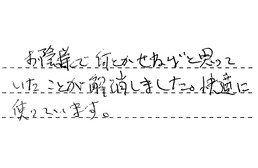 お陰様で何とかせねばと思って
いたことが解消しました。快適に
使っています。